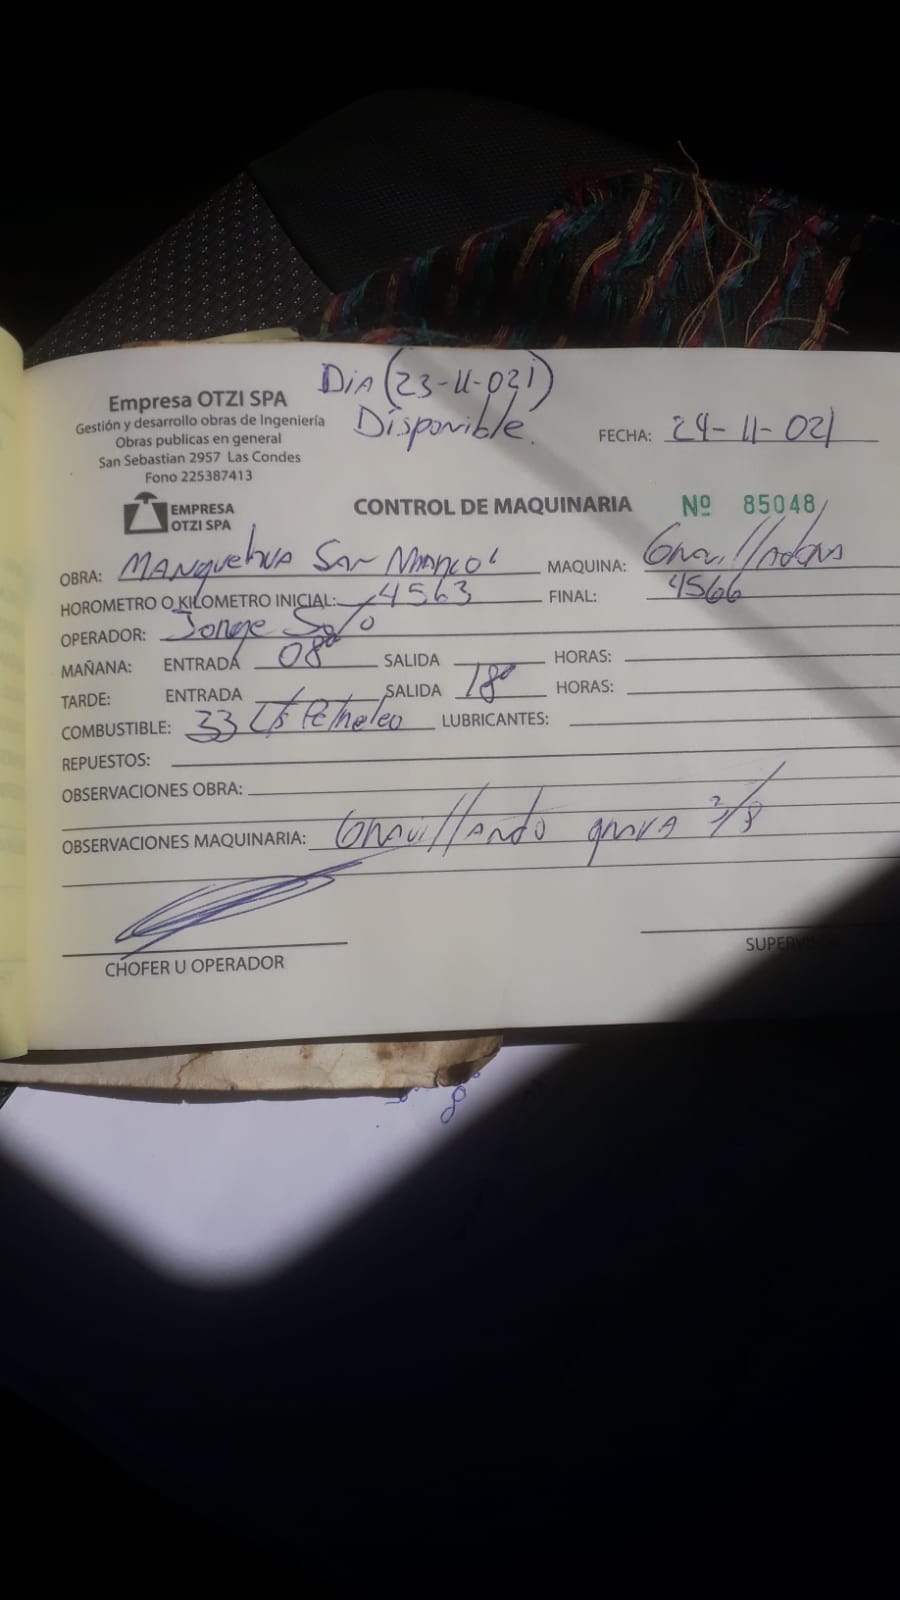 Dia (23-11-021)
Disponible.
Empresa OTZI SPA
Gestión y desarrollo obras de Ingeniería
Obras publicas en general
San Sebastian 2957 Las Condes
Fono 225387413
FECHA: 24-11-021
EMPRESA
OTZI SPA
CONTROL DE MAQUINARIA Nº 85048
OBRA: MANquehua San MARCOS MAQUINA: Gravilladora
HOROMETRO O KILOMETRO INICIAL: 4563 FINAL: 4566
OPERADOR: Jorge Soto
MAÑANA: ENTRADA 08⁰⁰ SALIDA HORAS:
TARDE: ENTRADA SALIDA 18⁰⁰ HORAS:
COMBUSTIBLE: 33 Lts Petroleo LUBRICANTES:
REPUESTOS:
OBSERVACIONES OBRA:
OBSERVACIONES MAQUINARIA: Gravillando grava 3/8
CHOFER U OPERADOR